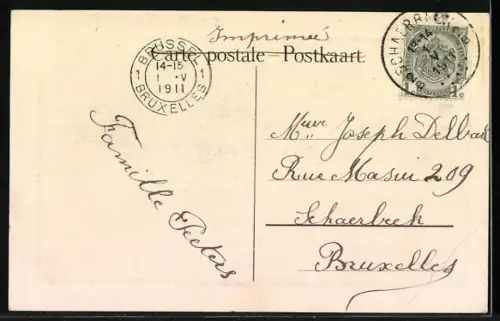 Imprimée
Carte postale – Postkaart.
BRUSSEL
14-15
1 V
1911
1 BRUXELLES 1
SCHAERBEEK
1911
Famille Peeters
Meur Joseph Delbrak
Rue Masui 209
Schaerbeek
Bruxelles